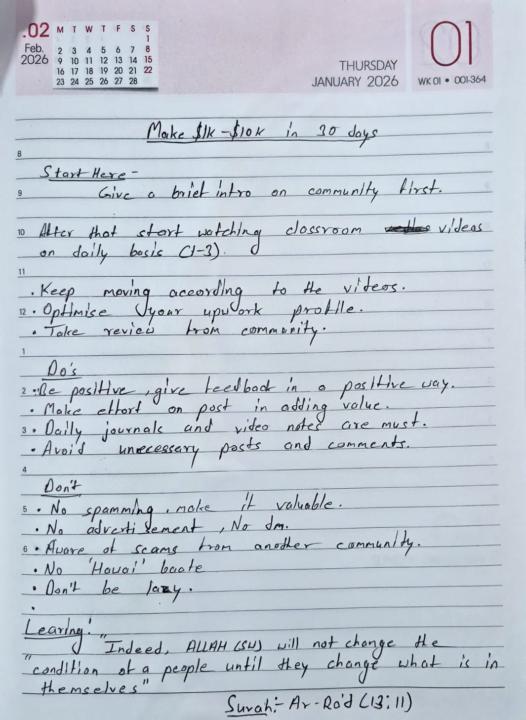 .02
Feb.
2026
M T W T F S S
1
2 3 4 5 6 7 8
9 10 11 12 13 14 15
16 17 18 19 20 21 22
23 24 25 26 27 28
THURSDAY
JANUARY 2026
01
WK 01 • 001-364
Make $1k-$10k in 30 days
8
Start Here -
9 Give a brief intro on community first.
10 After that start watching classroom videos
on daily basis (1-3).
11
• Keep moving according to the videos.
12 • Optimise your upwork profile.
• Take review from community.
1
Do's
2 • Be positive, give feedback in a positive way.
• Make effort on post in adding value.
3 • Daily journals and video notes are must.
• Avoid unnecessary posts and comments.
4
Don't
5 • No spamming, make it valuable.
• No advertisement, No dm.
6 • Aware of scams from another community.
• No 'Hawai' baate
• Don't be lazy.
•
Learing:
"Indeed, ALLAH (SW) will not change the
"condition of a people until they change what is in
themselves"
Surah:- Ar-Ra'd (13:11)